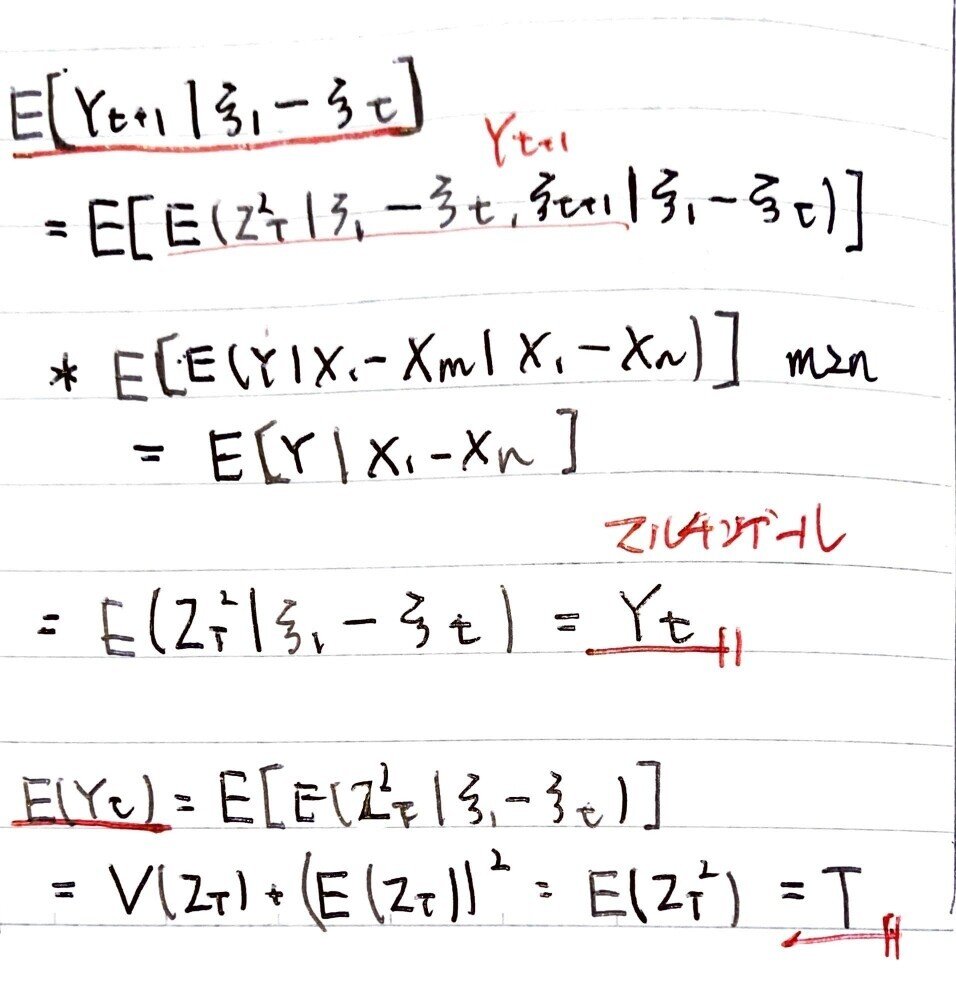 E[Yt+1 | ξ1 − ξt]
Yt+1
= E[E(Z²T | ξ1 − ξt, ξt+1 | ξ1 − ξt)]
* E[E(Y | X1 − Xm | X1 − Xn)] m≥n
= E[Y | X1 − Xn]
マルチンゲール
= E(Z²T | ξ1 − ξt) = Yt
E(Yt) = E[E(Z²T | ξ1 − ξt)]
= V(ZT) + (E(ZT))² = E(Z²T) = T